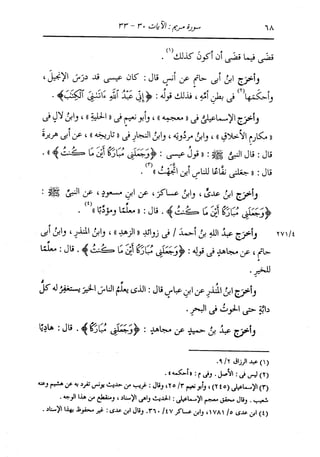 ٦٨ سورة مريم : الآيات ٣٠ - ٣٣
قضى فيما قضى أن أكونَ كذلك(١).
وأخرج ابنُ أبى حاتمٍ عن أنسٍ قال : كان عيسى قد درَس الإنجيلَ ،
وأحكَمها(٢) فى بطنِ أمِّه ، فذلك قولُه : ﴿إِنِّي عَبْدُ اللَّهِ ءَاتَىٰنِيَ الْكِتَٰبَ﴾ .
وأخرج الإسماعيلىُّ فى «معجمِه» ، وأبو نعيمٍ فى «الحليةِ» ، وابنُ لالٍ فى
«مكارمِ الأخلاقِ» ، وابنُ مردُويَه ، وابنُ النجارِ فى «تاريخِه» ، عن أبى هريرةَ
قال : قال النبىُّ ﷺ : «قولُ عيسى : ﴿وَجَعَلَنِي مُبَارَكًا أَيْنَ مَا كُنتُ﴾» .
قال : «جعَلنى نفَّاعًا للناسِ أينَ اتَّجَهتُ»(٣) .
وأخرج ابنُ عدىٍّ ، وابنُ عساكرَ ، عن ابنِ مسعودٍ ، عن النبىِّ ﷺ :
﴿وَجَعَلَنِي مُبَارَكًا أَيْنَ مَا كُنتُ﴾ . قال : «معلِّمًا ومؤدِّبًا»(٤) .
٢٧١/٤ وأخرج عبدُ اللهِ بنُ أحمدَ / فى زوائدِ «الزهدِ» ، وابنُ المنذرِ ، وابنُ أبى
حاتمٍ ، عن مجاهدٍ فى قولِه : ﴿وَجَعَلَنِي مُبَارَكًا أَيْنَ مَا كُنتُ﴾ . قال : معلِّمًا
للخيرِ .
وأخرج ابنُ المنذرِ عن ابنِ عباسٍ قال : الذى يعلِّمُ الناسَ الخيرَ يستغفِرُ له كلُّ
دابَّةٍ حتى الحوتُ فى البحرِ .
وأخرج عبدُ بنُ حميدٍ عن مجاهدٍ : ﴿وَجَعَلَنِي مُبَارَكًا﴾ . قال : هاديًا
(١) عبد الرزاق ٩/٢.
(٢) ليس فى : الأصل . وفى م : «أحكمه» .
(٣) الإسماعيلى (٢٤٥) ، وأبو نعيم ٢٥/٣ ، وقال : غريب من حديث يونس تفرد به عن هشيم وعنه
شعيب . وقال محقق معجم الإسماعيلى : الحديث واهى الإسناد ، ومنقطع من هذا الوجه .
(٤) ابن عدى ١٧٨١/٥ ، وابن عساكر ٣٦٠/٤٧ . وقال ابن عدى : غير محفوظ بهذا الإسناد .